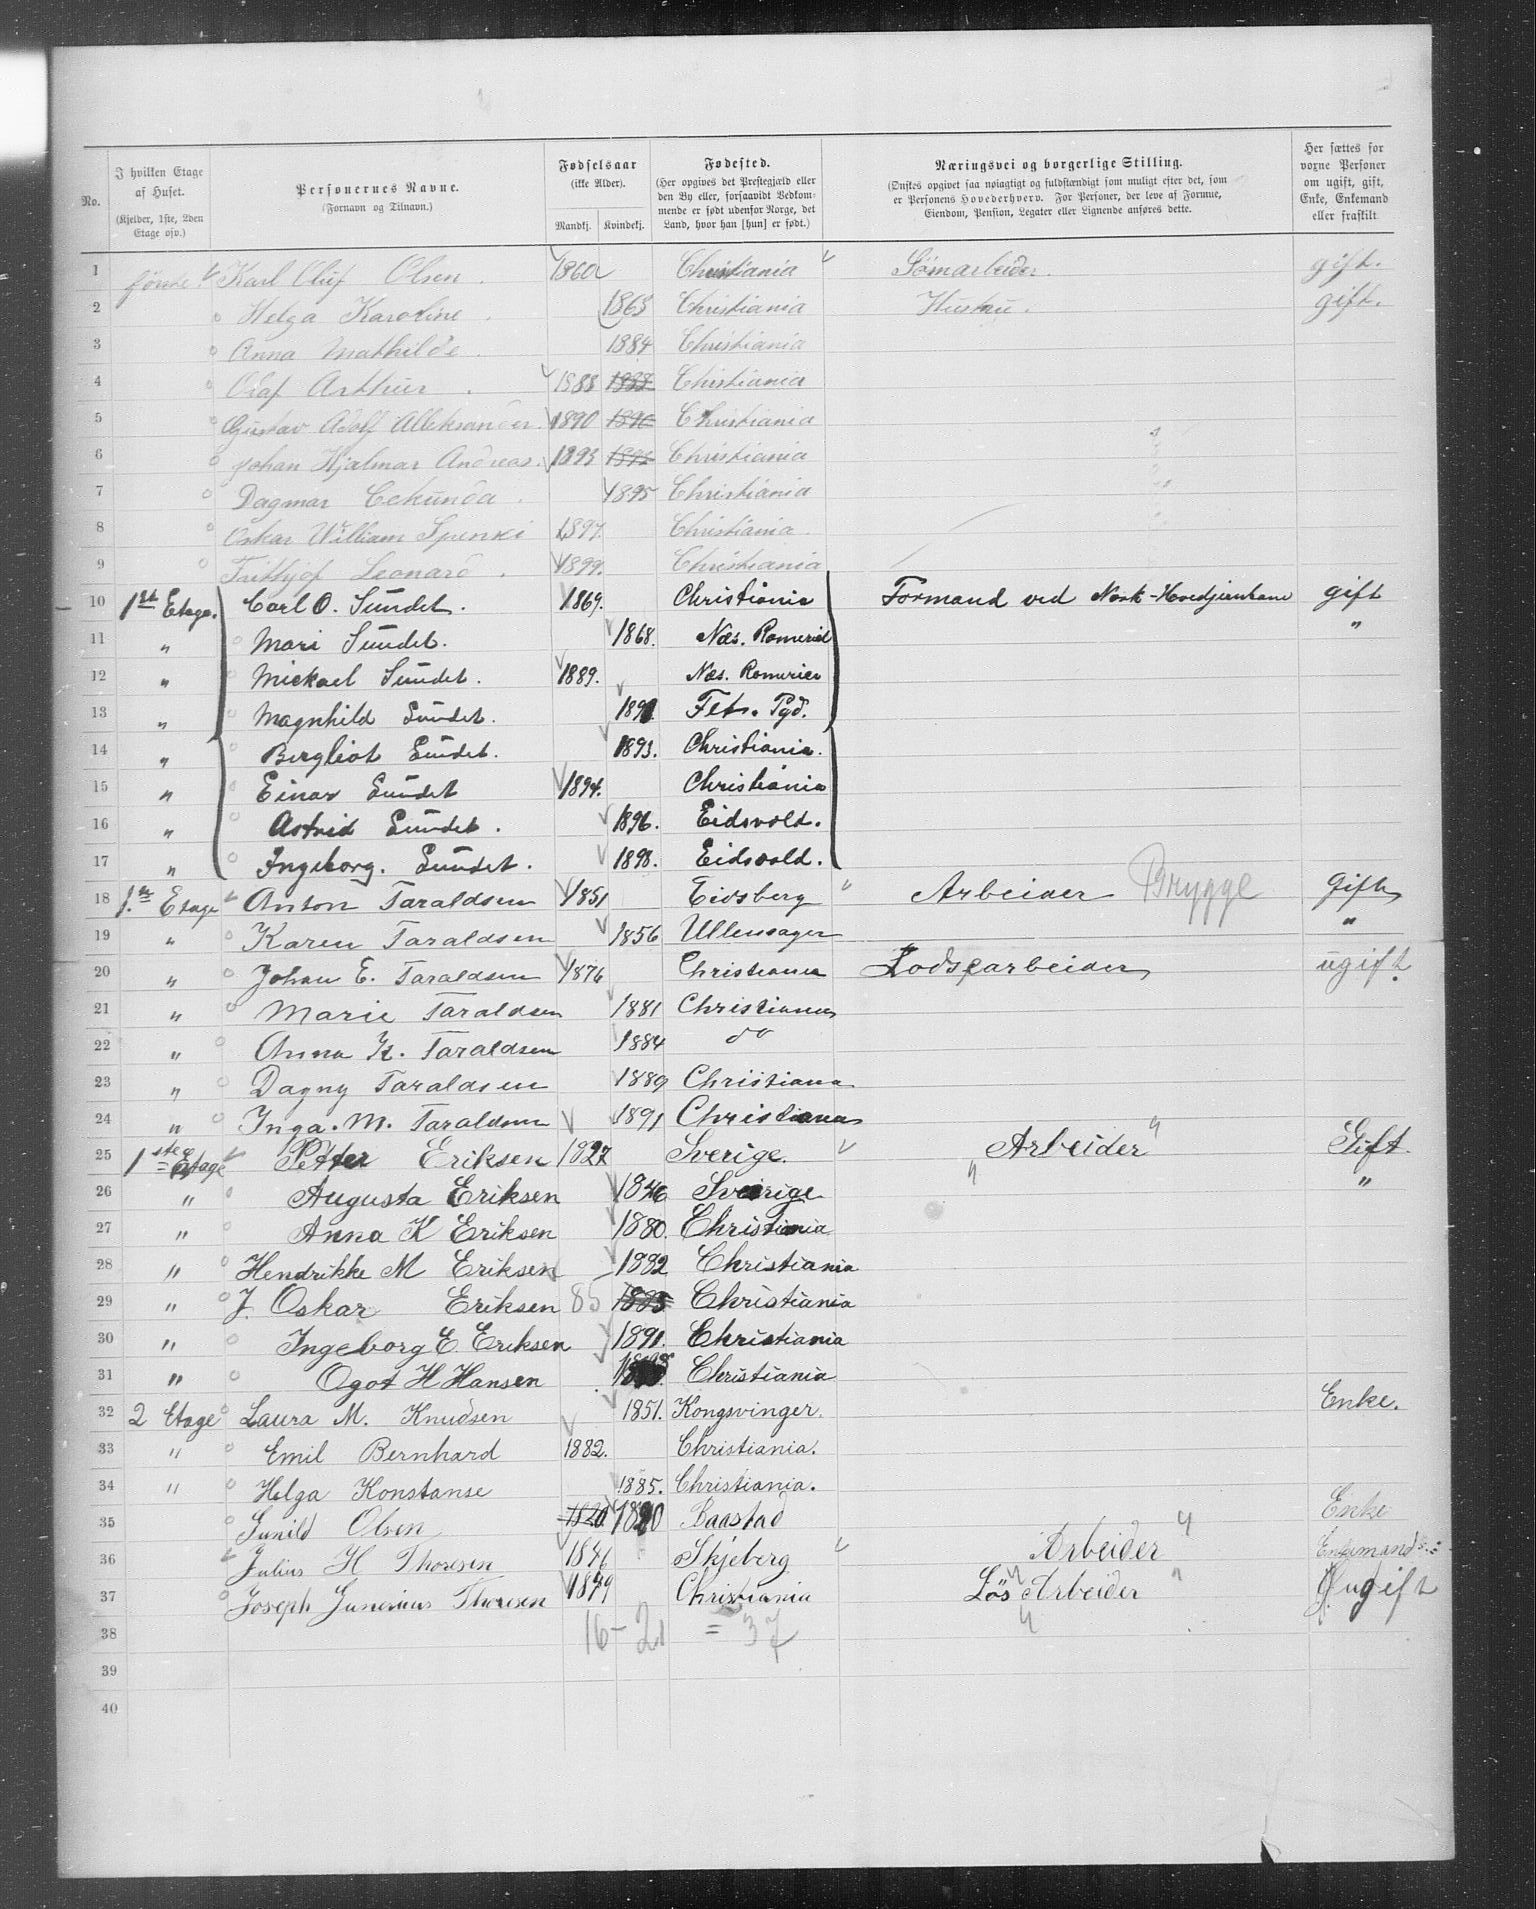 No. | I hvilken Etage af Huset. (Kjelder, 1ste, 2den Etage osv.) | Personernes Navne. (Fornavn og Tilnavn.) | Fødselsaar (ikke Alder). Mandkj. Kvindekj. | Fødested. (Her opgives det Prestegjæld eller den By eller, forsaavidt Vedkommende er født udenfor Norge, det Land, hvor han [hun] er født.) | Næringsvei og borgerlige Stilling. (Ønskes opgivet saa nøiagtigt og fuldstændigt som muligt efter det, som er Personens Hovederhverv. For Personer, der leve af Formue, Eiendom, Pension, Legater eller Lignende anføres dette. | Her sættes for voxne Personer om ugift, gift, Enke, Enkemand eller fraskilt
1 første Karl Oluf Olsen. 1860 Christiania Sömarbeider. gift.
2 Helga Karoline. 1863 Christiania Hustru. gift.
3 Anna Mathilde. 1884 Christiania
4 Olaf Arthur. 1888 1888 Christiania
5 Gustav Adolf Alleksander. 1890 1890 Christiania
6 Johan Hjalmar Andreas. 1893 1893 Christiania
7 Dagmar. 1895 Christiania
8 Oskar William 1897. Christiania.
9 Frithjof Leonard. 1899. Christiania
10 1st Etage. Carl O. Sundet. 1869. Christiania Formand ved Norsk-Hovedjernbane gift
11 " Mari Sundet. 1868. Næs. Romerike "
12 " Mickael Sundet. 1889. Næs. Romerike
13 " Magnhild Sundet. 1891. Fet. Pgd.
14 " Bergliot Sundet. 1893. Christiania.
15 " Einar Sundet 1894. Christiania
16 " Astrid Sundet. 1896. Eidsvold.
17 " Ingeborg. Sundet. 1898. Eidsvold.
18 1. Etage Anton Taraldsen 1851 Eidsberg Arbeider Brygge Gift
19 " Karen Taraldsen 1856 Ullensager "
20 " Johan E. Taraldsen 1876 Christiania Lodsearbeider ugift.
21 " Marie Taraldsen 1881 Christiania
22 " Anna K. Taraldsen 1884 do
23 " Dagny Taraldsen 1889 Christiana
24 " Inga. M. Taraldsen 1891 Christiana
25 1ste Etage Petter Eriksen 1827 Sverige. Arbeider Gift.
26 " Augusta Eriksen 1846 Sverige "
27 " Anna K Eriksen 1880. Christiania
28 " Hendrikke M Eriksen 1882 Christiania
29 " J. Oskar Eriksen 85 1885 Christiania
30 " Ingeborg E Eriksen 1891. Christiania
31 " Ogot H Hansen Christiania
32 2 Etage Laura M. Knudsen 1851. Kongsvinger. Enke.
33 " Emil Bernhard 1882. Christiania.
34 " Helga Konstanse 1885. Christiania.
35 Gunild Olsen 1820 1820 Baastad Enke
36 Julius H Thoresen 1846 Skjeberg Arbeider Enkemand
37 Joseph Thoresen 1879 Christiania Løs Arbeider ugift
38 16 - 21 = 37
39
40